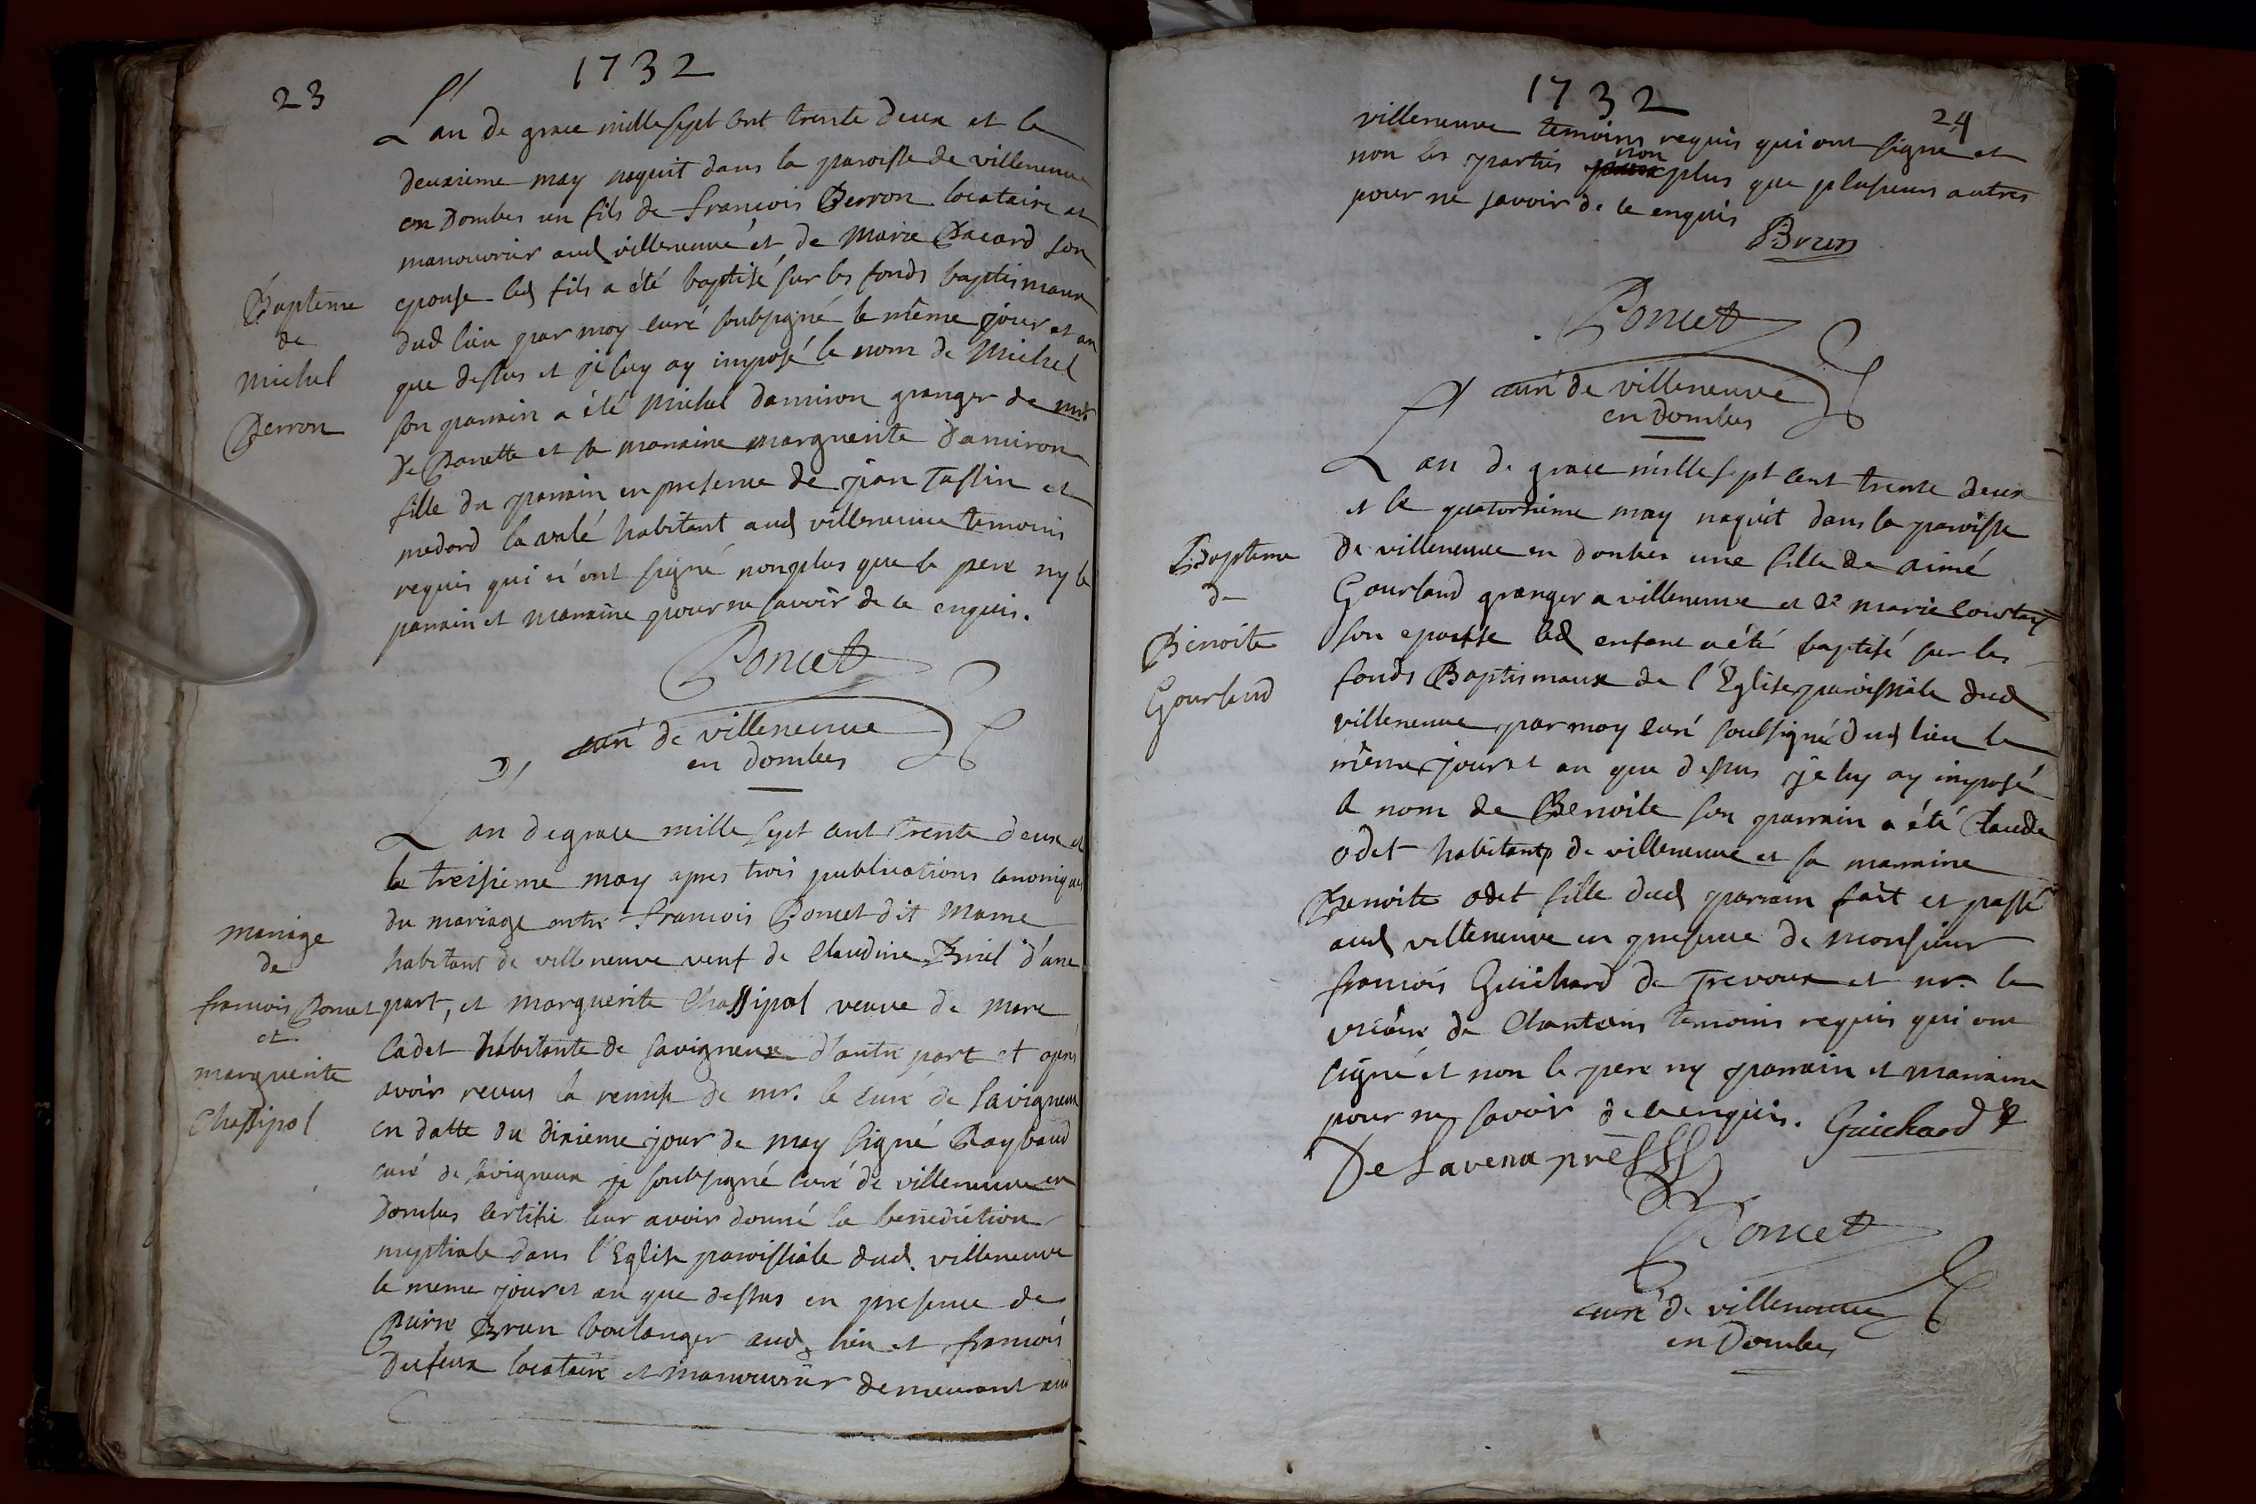 23
1732
L'an de grace mille sept cent trente deux et le
deuxieme may naquit dans la paroisse de villeneuve
en Dombes un fils de francois Perron locataire et
manouvrier aud villeneuve et de Marie Dacard son
Bapteme
de
Michel
Perron
epouse led fils a été baptisé sur les fonds baptismaux
dud lieu par moy curé soubsigné le même jour et an
que dessus et je luy ay imposé le nom de Michel
son parrain a été Michel Damiron granger de mr
De Barette et sa marraine marguerite Damiron
fille du parrain en presence de jean Tassin et
medard la valé habitant aud villeneuve temoins
requis qui n'ont signé non plus que le pere ny le
parrain et marraine pour ne savoir de ce enquis.
Poncet
curé de villeneuve
en dombes
L'an de grace mille sept cent trente deux et
le treisieme may apres trois publications canoniques
du mariage entre francois Poncet dit Mame
habitant de villeneuve veuf de Claudine Bruel d'une
mariage
de
francois Poncet
et
marguerite
Chassipol
part, et marguerite Chassipol veuve de Marc
Cadet habitante de savigneux d'autre part et apres
avoir reçus la remise de mr. le curé de savigneux
en datte du dixieme jour de may signé Raybaud
curé de savigneux je soubsigné curé de villeneuve en
Dombes certifie leur avoir donné la benediction
nuptiale dans l'Eglise paroissiale dud. villeneuve
le meme jour et an que dessus en presence de
Pierre Brun boulanger aud. lieu et francois
Dufeux locataire et manouvrier demeurant aud
1732
24
villeneuve temoins requis qui ont signé et
non les parties non plus que plusieurs autres
pour ne savoir de ce enquis
Brun
Poncet
curé de villeneuve
en dombes
L'an de grace mille sept cent trente deux
et le quatorzieme may naquit dans la paroisse
de villeneuve en dombes une fille de aimé
Bapteme
de
Benoite
Gourland
Gourland granger a villeneuve et de marie Coustant
son epouse led enfant a été baptisé sur les
fonds Baptismaux de l'Eglise paroissiale dud
villeneuve par moy curé soubsigné dud lieu le
même jour et an que dessus je luy ay imposé
le nom de Benoite son parrain a été Claude
odet habitant de villeneuve et sa marraine
Benoite odet fille dud parrain fait et passé
aud villeneuve en presence de monsieur
francois Guichard de Trevoux et mr. le
vicaire de Chantains temoins requis qui ont
signé et non le pere ny parrain et marraine
pour ne savoir de ce enquis. Guichard
De Lavena prë
Poncet
curé de villeneuve
en Dombes